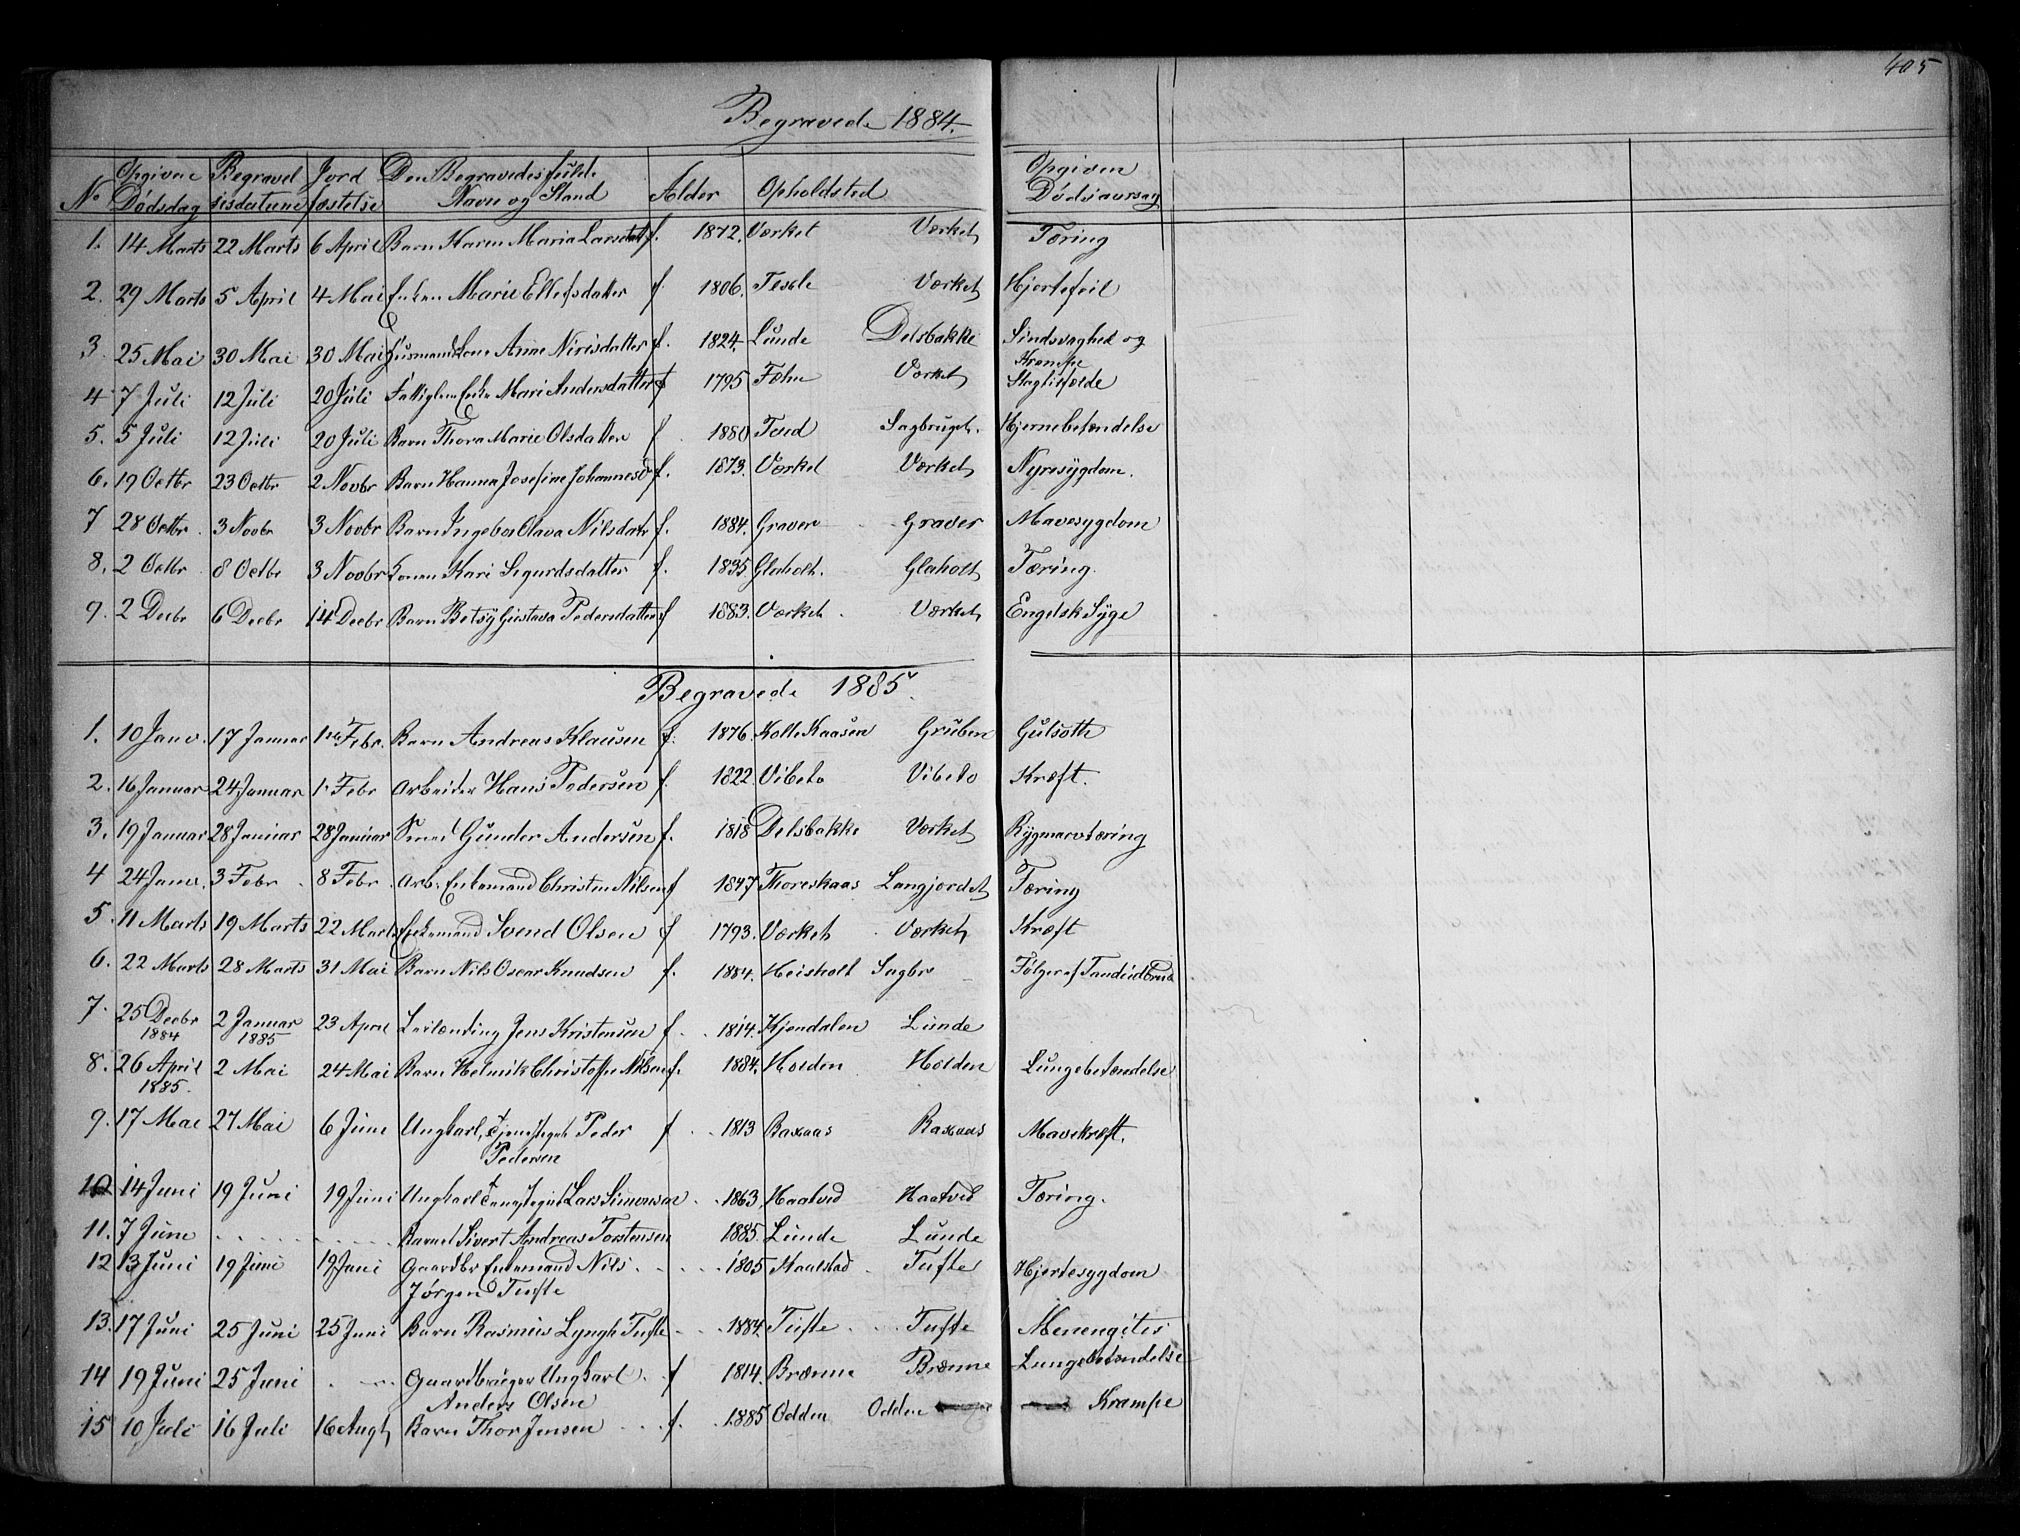 405
Begravede 1884.
No Opgiven Dødsdag Begravelsesdatum Jordfæstelse Den Begravedes fulde Navn og Stand Alder Opholdsted Opgiven Dødsaarsag
1. 14 Marts 22 Marts 6 April Barn Karen Maria Larsdatt f. 1872. Værket Værket Tæring
2. 29 Marts 5 April 4 Mai Enken Marie Ellefsdatter f. 1806. Værket Hjertefeil
3. 25 Mai 30 Mai 30 Mai Husmandskone Anne Nirisdatter f. 1824. Lunde Delsbakke Sindsvaghed og Krampe
4 7 Juli 12 Juli 20 Juli Fattiglem Enke Mari Andersdatter f 1795 Værket
5. 5 Juli 12 Juli 20 Juli Barn Thora Marie Olsdatter f. 1880 Tved Sagbruget. Hjernebetændelse
6. 19 Octbr 23 Octbr 2 Novbr Barn Hanna Josefine Johannesd f. 1873. Værket Værket Nyresygdom.
7 28 Octbr. 3 Novbr 3 Novbr Barn Ingebor Olava Nilsdatr f. 1884. Graver Graver Mavesygdom
8. 2 Octbr 8 Octbr 3 Novbr Konen Kari Sigurdsdatter f. 1835. Glaholt. Glaholt Tæring.
9. 2 Decbr 6 Decbr 14 Decbr Barn Betsy Gustava Pedersdatter f 1883. Værket. Værket Engelsk Syge
Begravede 1885.
1. 10 Janv. 17 Januar 1ste Febr. Barn Andreas Klausen f. 1876. Kolle Kaasen Gruben Gulsott
2. 16 Januar 24 Januar 1. Febr Arbeider Hans Pedersen f. 1822 Vibeto Vibeto Kræft.
3. 19 Januar 28 Januar 28 Januar Smed Gunder Andersen f. 1818 Delsbakke Værket Rygmarvtæring
4 24 Janv. 3 Febr. 8 Febr. Arb. Enkemand Christen Nilsen f 1847 Thoreskaas Langjordet Tæring
5. 11 Marts 19 Marts 22 Marts Enkemand Svend Olsen f 1793. Værket. Værket Kræft
6. 22 Marts 28 Marts 31 Mai Barn Nils Oscar Knudsen f. 1884. Heisholt Sagbr Følger af
7. 25 Decbr 1884 2 Januar 1885 23 April Leilænding Jens Kristensen f. 1814. Kjendalen Lunde
8. 26 April 1885. 2 Mai 24 Mai Barn Helmik Christoffer Nilsen f. 1884. Holden Holden Lungebetændelse
9. 17 Mai 27 Mai 6 Juni Ungkarl, Peder Pedersen f 1813 Raxaas Raxaas Mavekræft.
10 14 Juni 19 Juni 19 Juni Ungkarl Lars Simonsen 1863. Haatvid Haatvid Tæring.
11. 7 Juni Barnet Sivert Andreas Torstensen 1885. Lunde Lunde
12 13 Juni 19 Juni 19 Juni Gaardbr Enkemand Nils Jørgen Tufte 1805 Kaalstad Tufte Hjertesygdom
13. 17 Juni 25 Juni 25 Juni Barn Rasmus Lyngh Tufte 1884. Tufte Tufte Menengites
14 19 Juni 25 Juni Gaardbruger Ungkarl Anders Olsen f 1814. Brænne Brænne Lungebetændelse
15 10 Juli 16 Juli 16 Augt Barn Thor Jensen f. 1885 Odden Odden Krampe